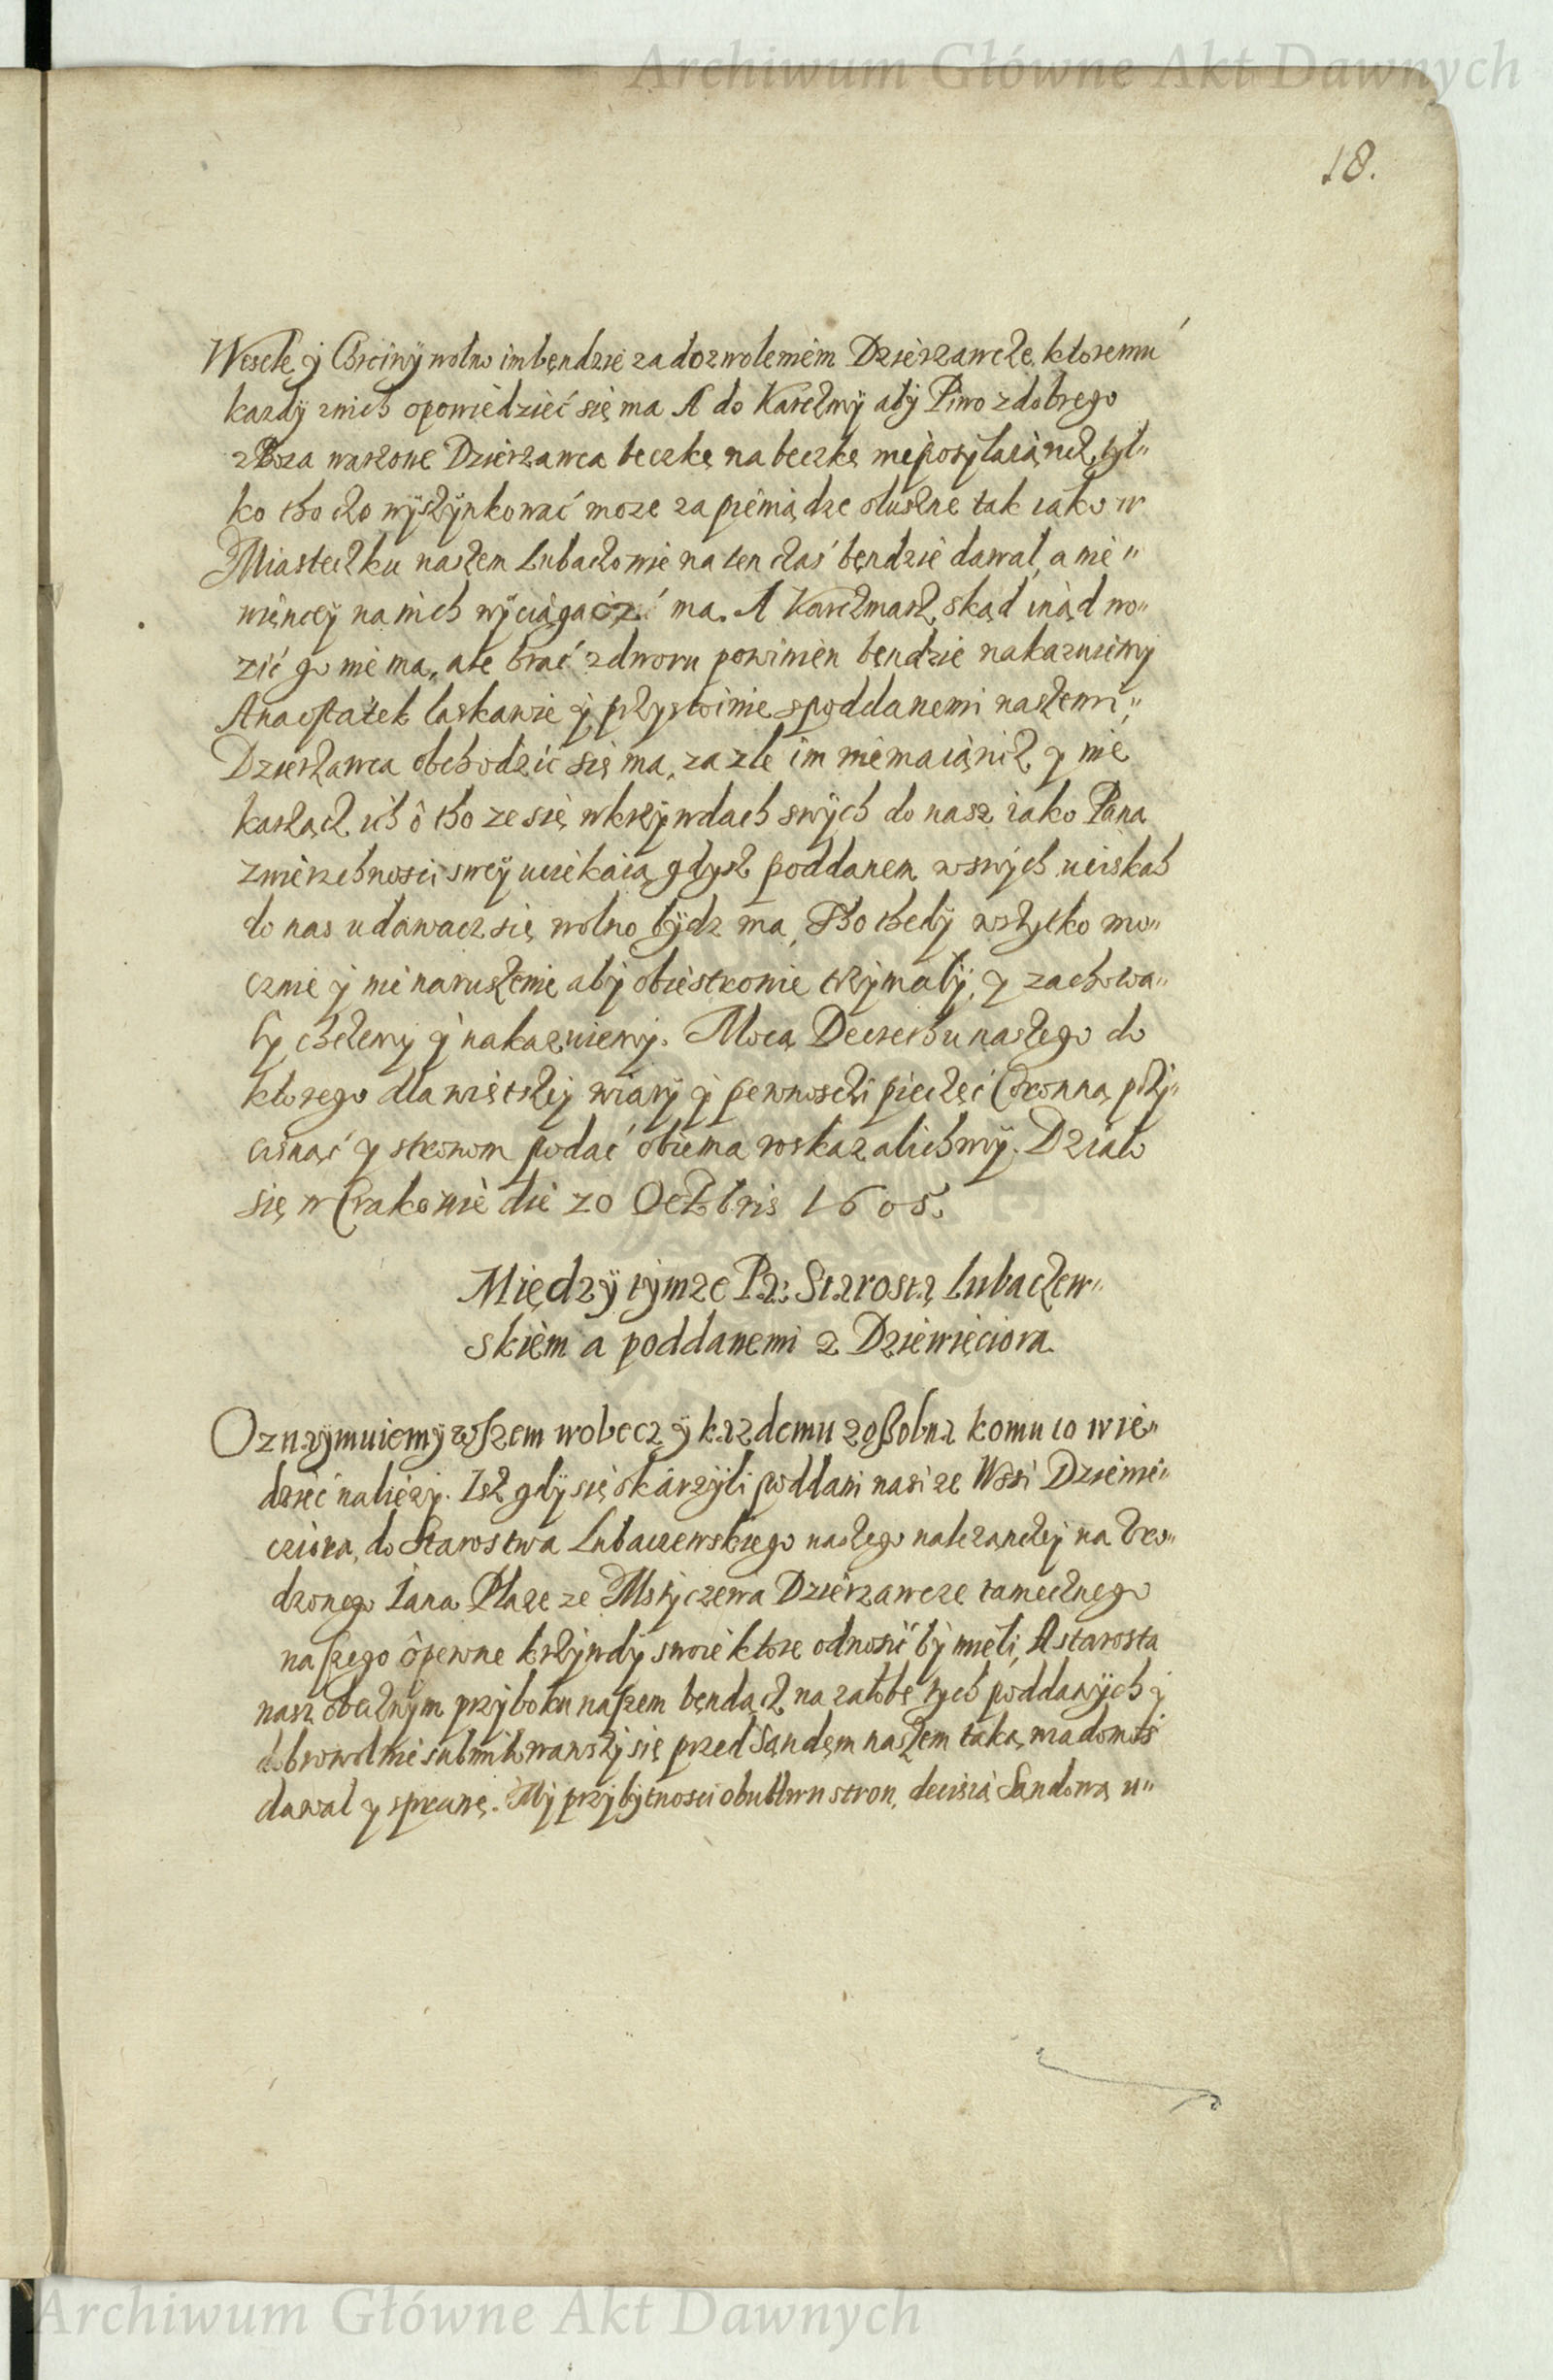 Archiwum Główne Akt Dawnych
18.
Wesele y Chrciny wolno im bęndzie za dozwoleniem Dzierzawcze ktoremu
kazdy znich opowiedzieć się ma A do Karczmy aby Piwo z dobrego
zboza warzone Dzierzawca beczkę na beczkę nie posyłaiąncz, tyl„
ko tho czo wyszynkować moze za pieniądze słuszne tak iako w
Miasteczku naszem Lubaczowie na ten czas bęndzie dawał, a nie„
więncey na nich wyciągacz ma. A Karczmarz skąd inąd wo„
zić go nie ma, ale brać z dworu powinien bęndzie nakazuiemy
A na ostatek laskawie y przystoinie s poddanemi naszemi„
Dzierzawca obchodzić się ma, za złe im nie maiąnicz y nie
karząc ich o tho ze się w krzywdach swych do nasz iako Pana
zwierzchnosci swey uciekaią gdysz poddanem w swych uciskach
do nas udawacz się wolno bydz ma, Tho thedy wszytko mo„
cznie y nie naruszenie aby obie stronie trzymały, y zachowa„
ły chczemy y nakazuiemy. Mocą Decrethu naszego do
ktorego dla więtszey wiary y pewnosczi pieczęć Coronną przy„
cisnąć y stronom podać obiema roskazalichmy. Działo
się w Crakowie die 20 Octobris 1605.
Między tymze Pa: Starostą Lubaczew„
skiem a poddanemi z Dziewięciora
Oznaymuiemy wszem wobecz y kazdemu zossobna komu to wie„
dzieć nalieży. Isz gdy się skarzyli poddani nasi ze Wsi Dziewię„
cziora, do Starostwa Lubaczewskiego naszego nalezanczey na Uro„
dzonego Iana Płaze ze Mstyczewa Dzierzawcze tamecznego
naszego o pewne krzywdy swoie ktore odnosić by mieli, A starosta
nasz obecznym przy boku naszem będącz na załobę tych poddanych y
dobrowolnie submitowawszy się przed Sąndem naszem taką wiadomość
dawał y sprawę. My przy bytnosci obudwu stron, decisią Sandową u„
Archiwum Główne Akt Dawnych